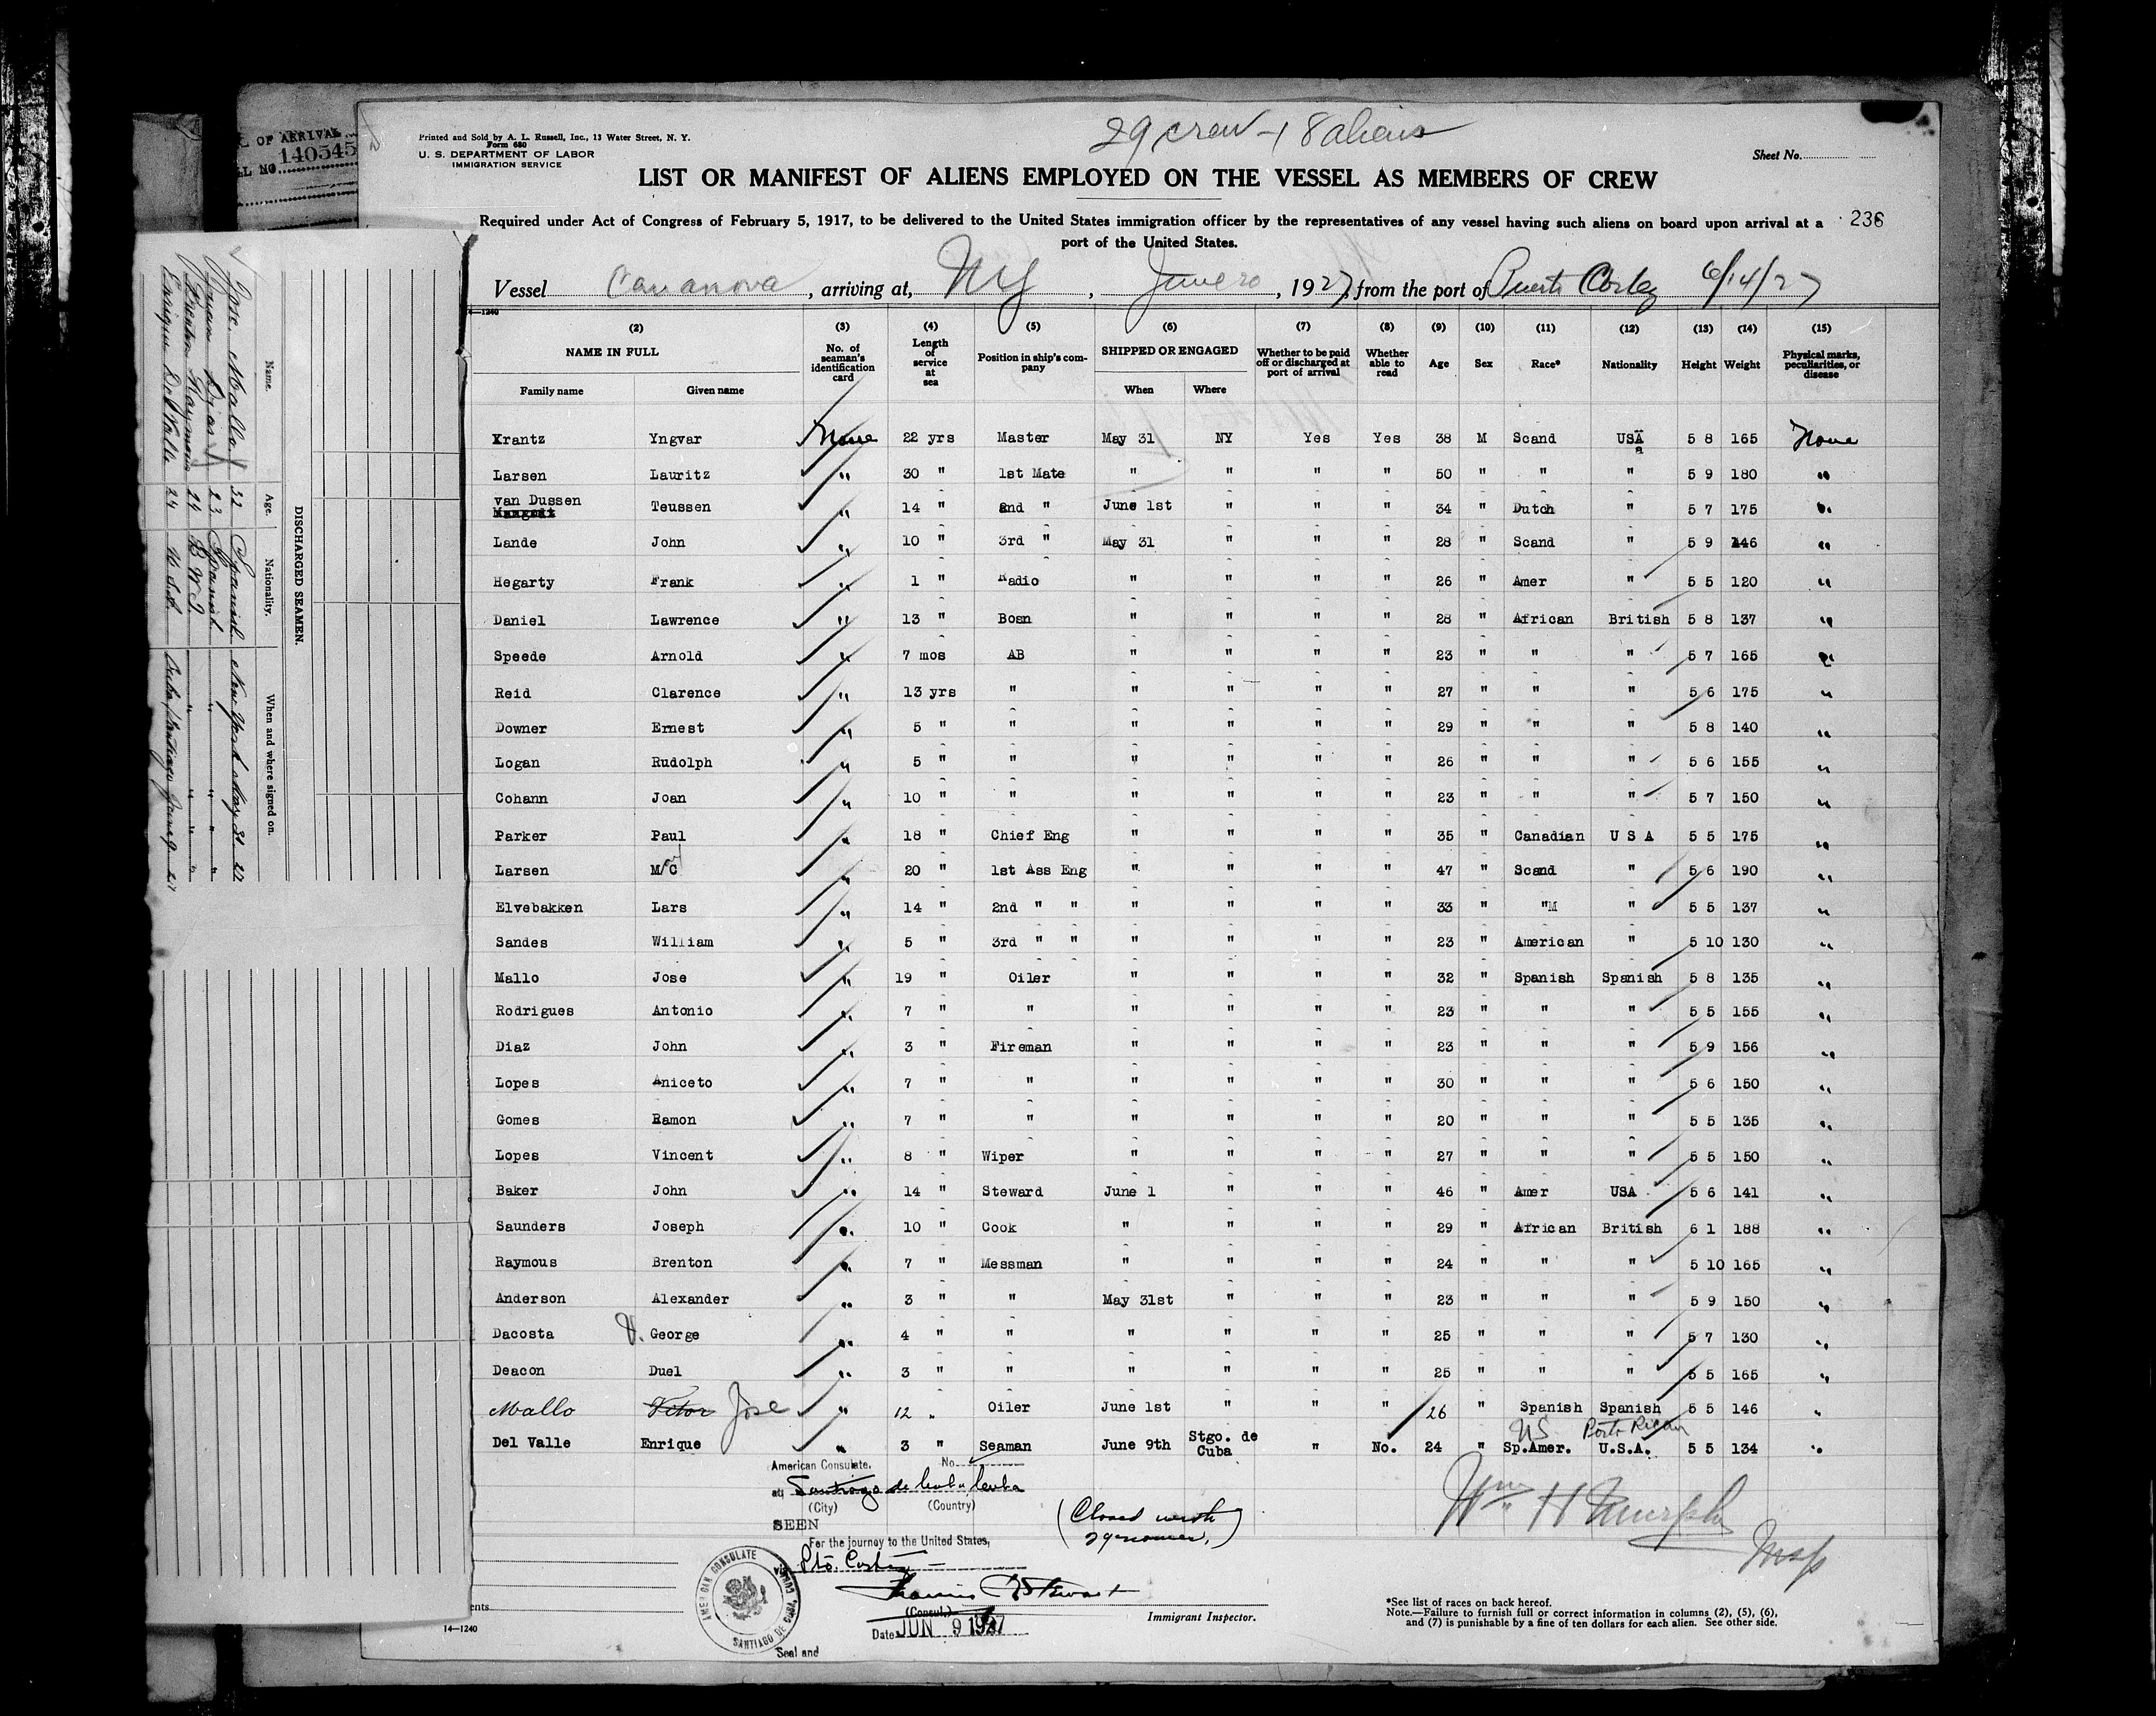 OF ARRIVAL
140545
LL NO.
Printed and Sold by A. L. Russell, Inc., 13 Water Street, N. Y.
Form 680
U. S. DEPARTMENT OF LABOR
IMMIGRATION SERVICE
29 crew - 18 aliens
Sheet No.
LIST OR MANIFEST OF ALIENS EMPLOYED ON THE VESSEL AS MEMBERS OF CREW
Required under Act of Congress of February 5, 1917, to be delivered to the United States immigration officer by the representatives of any vessel having such aliens on board upon arrival at a
port of the United States.
236
Vessel Casanova, arriving at, NY, June 20, 1927, from the port of Puerto Cortez 6/14/27
14—1240
(2) (3) (4) (5) (6) (7) (8) (9) (10) (11) (12) (13) (14) (15)
NAME IN FULL
Family name Given name
No. of seaman's identification card
Length of service at sea
Position in ship's company
SHIPPED OR ENGAGED
When Where
Whether to be paid off or discharged at port of arrival
Whether able to read
Age Sex Race* Nationality Height Weight
Physical marks, peculiarities, or disease
Krantz Yngvar None 22 yrs Master May 31 NY Yes Yes 38 M Scand USA 5 8 165 None
Larsen Lauritz " 30 " 1st Mate " " " " 50 " " " 5 9 180 "
van Dussen Teussen " 14 " 2nd " June 1st " " " 34 " Dutch " 5 7 175 "
Lande John " 10 " 3rd " May 31 " " " 28 " Scand " 5 9 146 "
Hegarty Frank " 1 " Radio " " " " 26 " Amer " 5 5 120 "
Daniel Lawrence " 13 " Bosn " " " " 28 " African British 5 8 137 "
Speede Arnold " 7 mos AB " " " " 23 " " " 5 7 165 "
Reid Clarence " 13 yrs " " " " " 27 " " " 5 6 175 "
Downer Ernest " 5 " " " " " " 29 " " " 5 8 140 "
Logan Rudolph " 5 " " " " " " 26 " " " 5 6 155 "
Cohann Joan " 10 " " " " " " 23 " " " 5 7 150 "
Parker Paul " 18 " Chief Eng " " " " 35 " Canadian U S A 5 5 175 "
Larsen M/C " 20 " 1st Ass Eng " " " " 47 " Scand " 5 6 190 "
Elvebakken Lars " 14 " 2nd " " " " " " 33 " "M " 5 5 137 "
Sandes William " 5 " 3rd " " " " " " 23 " American " 5 10 130 "
Mallo Jose " 19 " Oiler " " " " 32 " Spanish Spanish 5 8 135 "
Rodrigues Antonio " 7 " " " " " " 23 " " " 5 5 155 "
Diaz John " 3 " Fireman " " " " 23 " " " 5 9 156 "
Lopes Aniceto " 7 " " " " " " 30 " " " 5 6 150 "
Gomes Ramon " 7 " " " " " " 20 " " " 5 5 135 "
Lopes Vincent " 8 " Wiper " " " " 27 " " " 5 5 150 "
Baker John " 14 " Steward June 1 " " " 46 " Amer USA 5 6 141 "
Saunders Joseph " 10 " Cook " " " " 29 " African British 6 1 188 "
Raymous Brenton " 7 " Messman " " " " 24 " " " 5 10 165 "
Anderson Alexander " 3 " " May 31st " " " 23 " " " 5 9 150 "
Dacosta V. George " 4 " " " " " " 25 " " " 5 7 130 "
Deacon Duel " 3 " " " " " " 25 " " " 5 5 165 "
Mallo Victor Jose " 12 " Oiler June 1st " " " 26 " Spanish Spanish 5 5 146 "
US Porto Rican
Del Valle Enrique " 3 " Seaman June 9th Stgo. de Cuba " No. 24 " Sp.Amer. U.S.A. 5 5 134 "
American Consulate. No.
at Santiago de Cuba Cuba
(City) (Country)
SEEN
For the journey to the United States,
Pto. Cortez
(Consul.)
Date JUN 9 1927
Seal and
AMERICAN CONSULATE
SANTIAGO DE CUBA, CUBA
(Closed with
29 names.)
Wm H Murphy
Insp
Immigrant Inspector.
*See list of races on back hereof.
Note.—Failure to furnish full or correct information in columns (2), (5), (6),
and (7) is punishable by a fine of ten dollars for each alien. See other side.
ents
14—1240
DISCHARGED SEAMEN.
Name. Age. Nationality. When and where signed on.
Jose Mallo 32 Spanish New York May 31 27
Juan Dias 23 Spanish " " "
Brenton Raymous 24 B W I " " "
Enrique Del Valle 24 U.S.A. Cuba, Santiago June 9 27